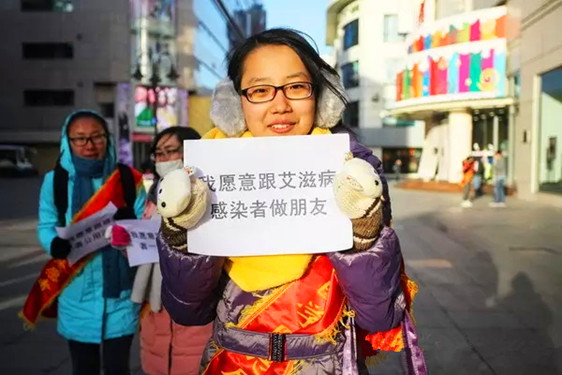 我愿意跟艾滋病
感染者做朋友